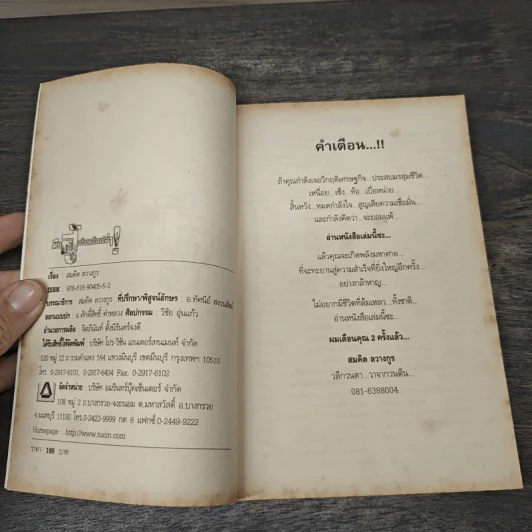 เรื่อง สมคิด ลวางกูร
ISBN 978-616-90405-5-2
บรรณาธิการ สมคิด ลวางกูร ที่ปรึกษา/พิสูจน์อักษร อ.ทัศนีย์
ออกแบบปก อ.ศักดิ์สิทธิ์ คำหลวง ศิลปกรรม : วิชัย อุ่นแก้ว
อำนวยการผลิต จิตปนันท์ ตั้งนิรันดร์จงดี
ได้รับสิทธิ์ได้จัดพิมพ์ : บริษัท โปร-วิชั่น เอนเตอร์เทนเมนท์ จำกัด
520 หมู่ 12 ถ.รามคำแหง 164 แขวงมีนบุรี เขตมีนบุรี กรุงเทพฯ 10510
โทร. 0-2917-6101, 0-2917-6404 Fax. 0-2917-6102
จัดจำหน่าย : บริษัท อมรินทร์บุ๊คเซ็นเตอร์ จำกัด
108 หมู่ 2 ถ.บางกรวย-จงถนอม ต.มหาสวัสดิ์ อ.บางกรวย
จ.นนทบุรี 11130 โทร.0-2423-9999 กด 6 แฟกซ์.0-2449-9222
Homepage : http://www.naiin.com
ราคา 199 บาท
คำเตือน...!!
ถ้าคุณกำลังเจอวิกฤติเศรษฐกิจ...ประสบมรสุมชีวิต...
เหนื่อย...เซ็ง...ท้อ...เบื่อหน่าย...
สิ้นหวัง...หมดกำลังใจ...สูญเสียความเชื่อมั่น...
และกำลังคิดว่า...จะยอมแพ้...
อ่านหนังสือเล่มนี้ซะ...
แล้วคุณจะเกิดพลังมหาศาล...
ที่จะทะยานสู่ความสำเร็จที่ยิ่งใหญ่อีกครั้ง...
อย่างกล้าหาญ...
ไม่อยากมีชีวิตที่ล้มเหลว...ทั้งชาติ...
อ่านหนังสือเล่มนี้ซะ...
ผมเตือนคุณ 2 ครั้งแล้ว...
สมคิด ลวางกูร
วลีกวนตา...วาจากวนตีน...
081-6388004